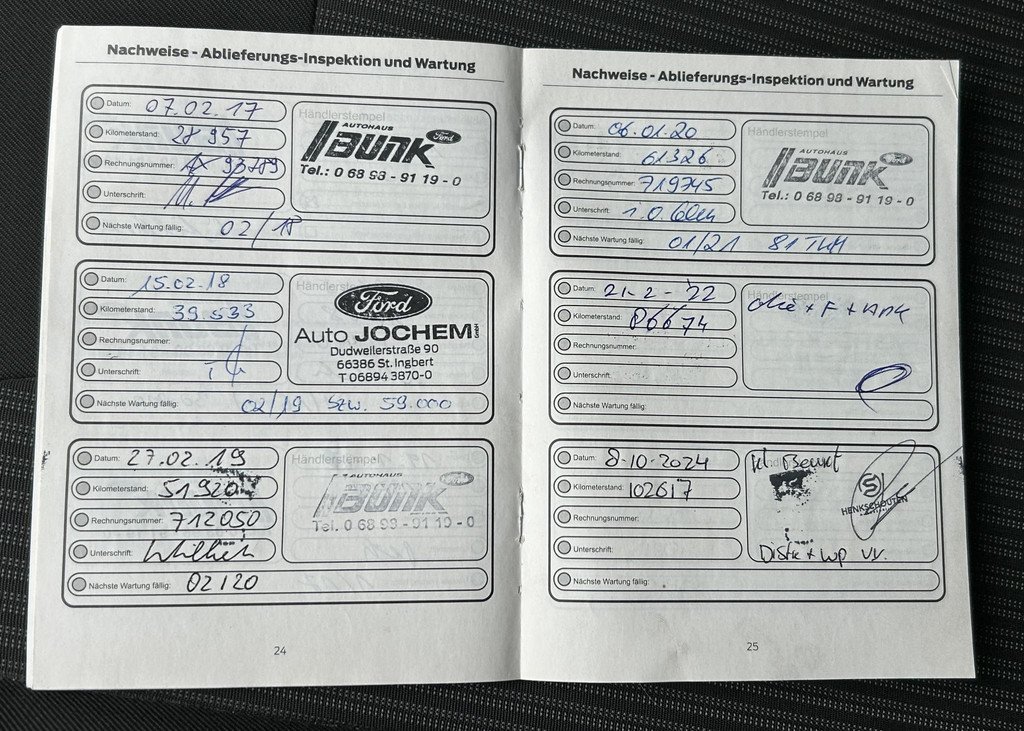 Nachweise - Ablieferungs-Inspektion und Wartung
Datum: 07.02.17
Kilometerstand: 28 957
Rechnungsnummer:
Unterschrift:
Nächste Wartung fällig: 02/18
Händlerstempel
AUTOHAUS
BUNK Ford
Tel.: 0 68 98 - 91 19 - 0
Datum: 15.02.18
Kilometerstand: 39.533
Rechnungsnummer:
Unterschrift:
Nächste Wartung fällig: 02/19 bzw. 59.000
Händlerstempel
Ford
Auto JOCHEM GmbH
Dudweilerstraße 90
66386 St. Ingbert
T 06894 3870-0
Datum: 27.02.19
Kilometerstand: 51920
Rechnungsnummer: 712050
Unterschrift:
Nächste Wartung fällig: 02120
Händlerstempel
AUTOHAUS
BUNK
Tel. 0 68 98 - 91 19 - 0
24
Nachweise - Ablieferungs-Inspektion und Wartung
Datum: 06.01.20
Kilometerstand: 61326
Rechnungsnummer: 719745
Unterschrift:
Nächste Wartung fällig: 01/21
Händlerstempel
AUTOHAUS
BUNK Ford
Tel.: 0 68 98 - 91 19 - 0
Datum: 21-2-'22
Kilometerstand: 86674
Rechnungsnummer:
Unterschrift:
Nächste Wartung fällig:
Händlerstempel
Olie + F +
Datum: 8-10-2024
Kilometerstand: 102617
Rechnungsnummer:
Unterschrift:
Nächste Wartung fällig:
kl. Beurt
HENK SCHOUTEN
25